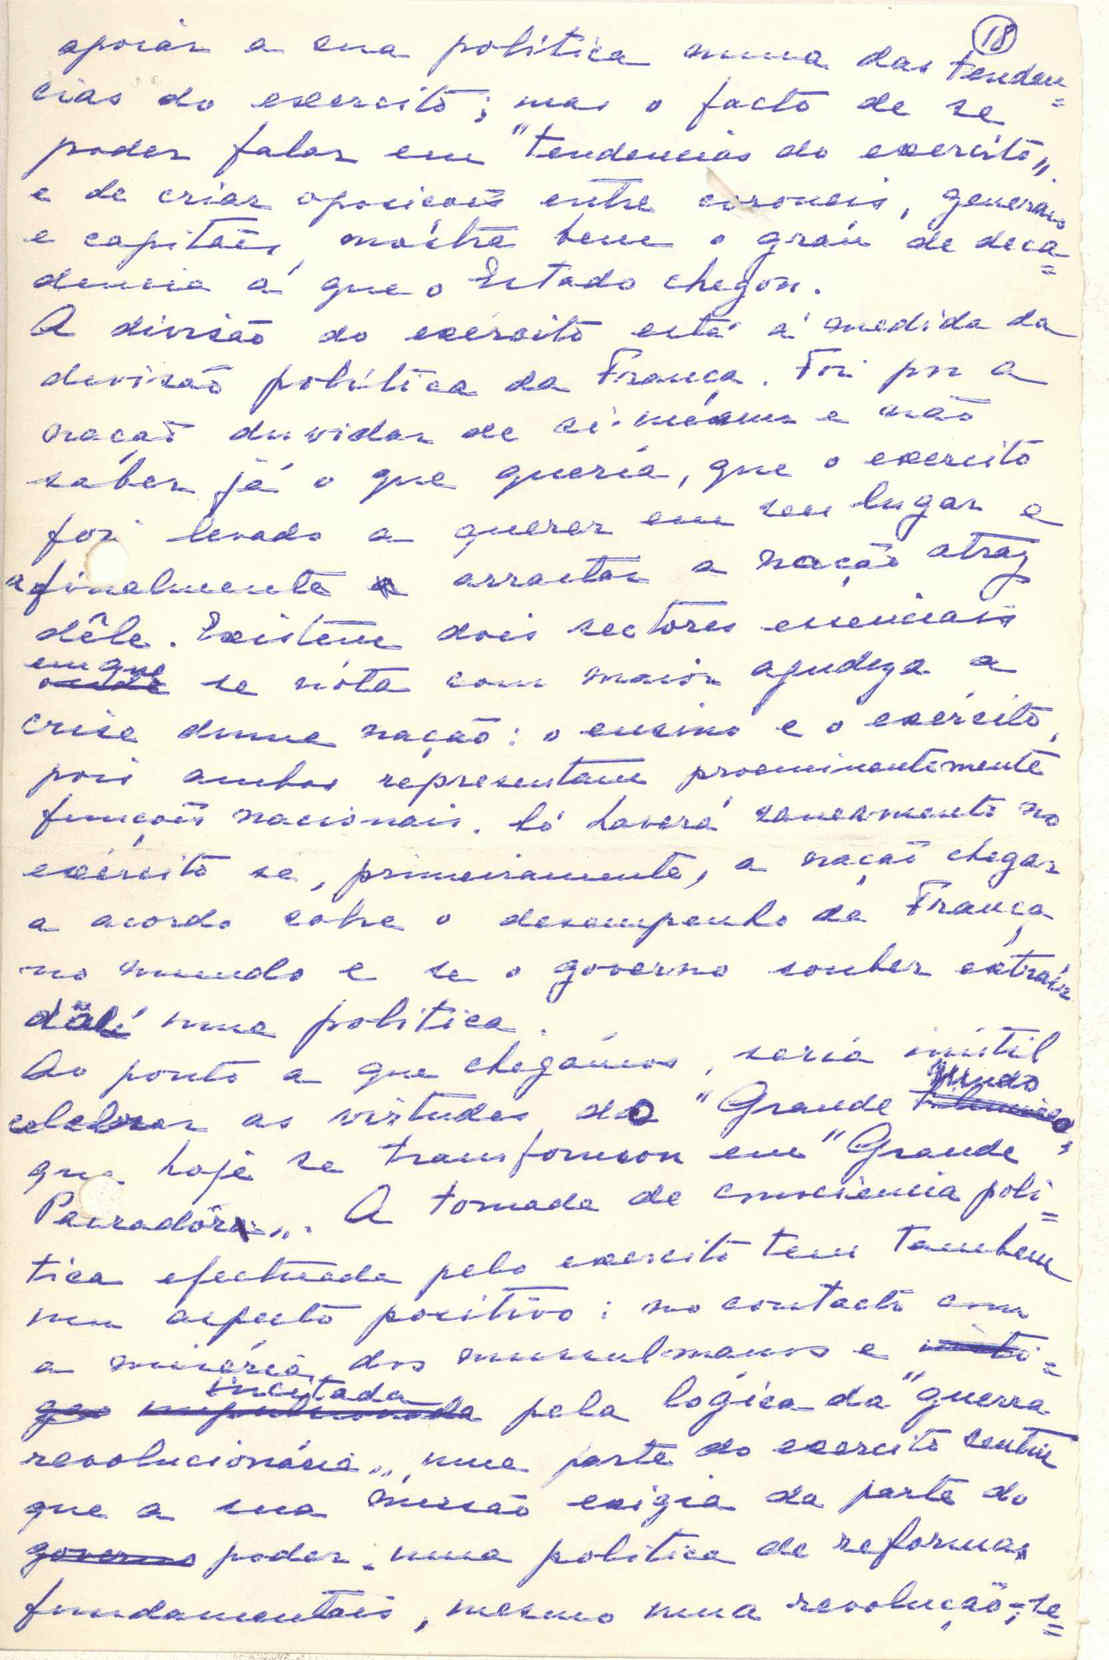 18
apoiar a sua política numa das tenden=
cias do exercito; mas o facto de se
poder falar em "tendencias do exercito„
e de criar oposicoes entre coroneis, generais
e capitães, mostra bem o gráu de deca=
dencia á que o Estado chegou.
A divisão do exército está á medida da
devisão politica da França. Foi por a
nação duvidar de si-mesma e não
saber já o que queria, que o exercito
foi levado a querer em seu lugar e
a finalmente arrastar a nação atraz
dêle. Existem dois sectores essenciais
em que
onde se nóta com maior agudeza a
crise duma nação: o ensino e o exército,
pois ambos representam proeminentemente
funções nacionais. Só haverá saneamento no
exército se, primeiramente, a nação chegar
a acordo sobre o desempenho da França
no mundo e se o governo souber extraír
dali uma politica.
Ao ponto a que chegámos, seria inútil
Mudo
celebrar as virtudes do "Grande
que hoje se transformou em "Grande
Parador„. A tomada de consciencia poli=
tica efectuada pelo exercito tem tambem
um aspecto positivo: no contacto com
a miséria dos mussulmanos e
incitada
pela lógica da "guerra
revolucionária„, uma parte do exercito sentiu
que a sua missão exigia da parte do
governo poder, uma politica de reformas
fundamentais, mesmo uma revolução-; se=